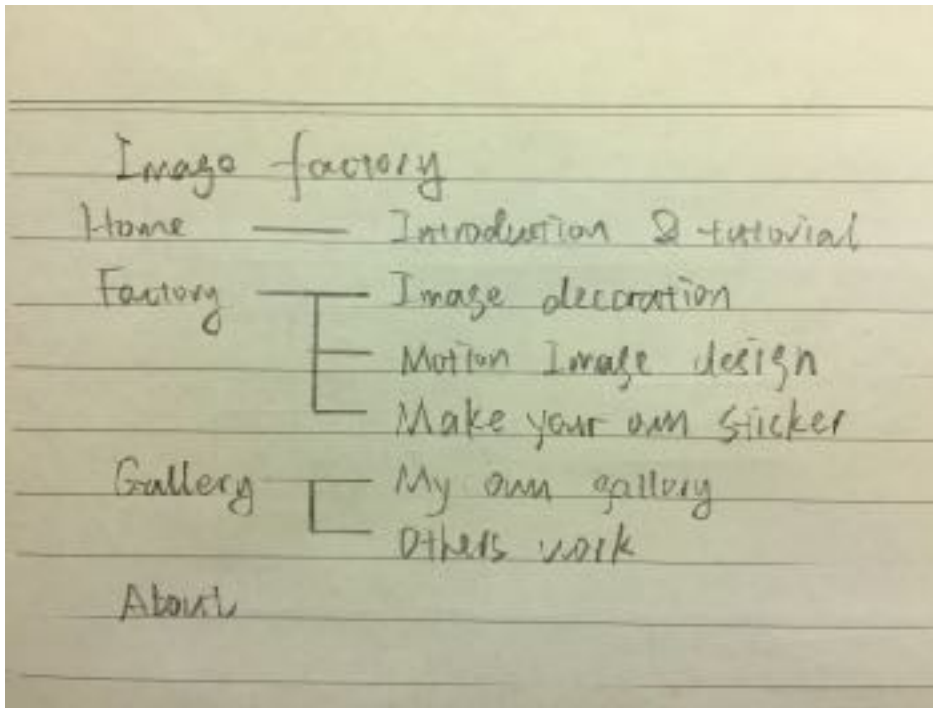 Image factory
Home — Introduction & tutorial
Factory — Image decoration
Motion Image design
Make your own sticker
Gallery — My own gallery
Others work
About